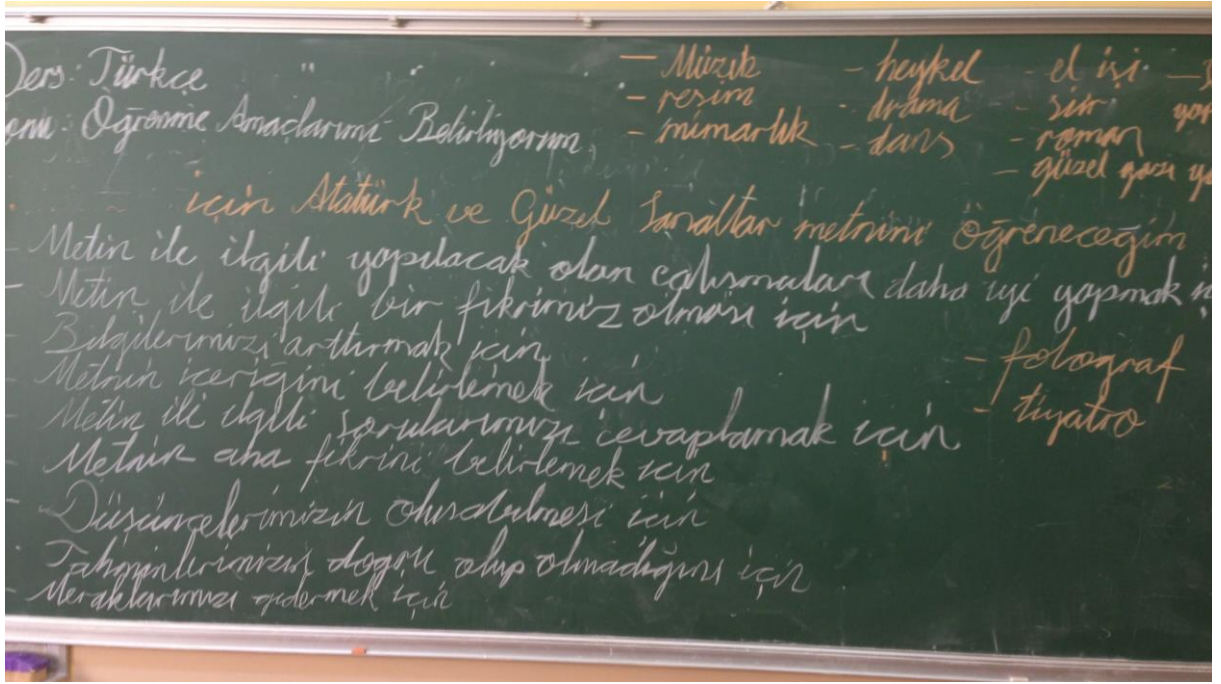 Ders: Türkçe
Konu: Öğrenme Amaçlarımı Belirliyorum
- Müzik - heykel - el işi
- resim - drama - şiir
- mimarlık - dans - roman
- güzel yazı
için Atatürk ve Güzel Sanaltar metnini öğreneceğim
- Metin ile ilgili yapılacak olan çalışmaları daha iyi yapmak iç
- Metin ile ilgili bir fikrimiz olması için
- Bilgilerimizi arttırmak için
- Metnin içeriğini belirlemek için
- Metin ile ilgili sorularımızı cevaplamak için
- Metnin ana fikrini belirlemek için
- Düşüncelerimizin oluşabilmesi için
- Tahminlerimizin doğru olup olmadığını için
- Meraklarımızı gidermek için
- fotograf
- tiyatro